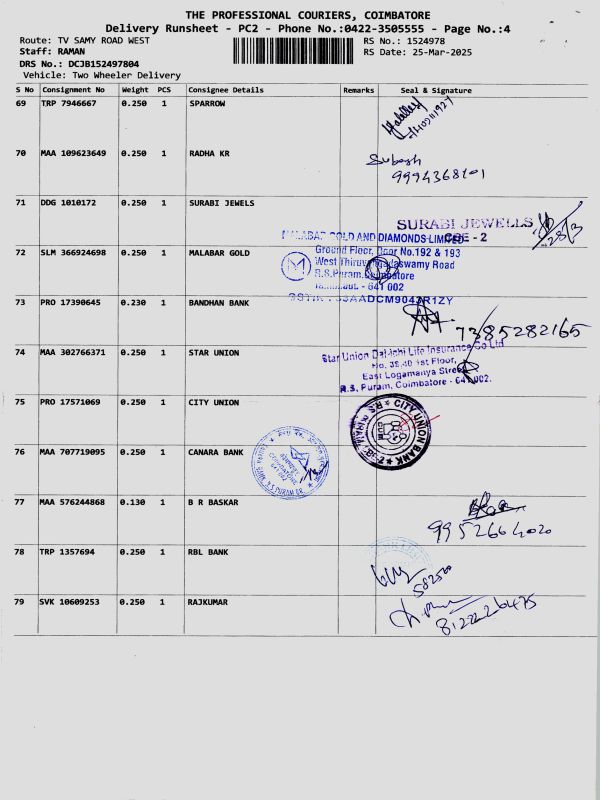 THE PROFESSIONAL COURIERS, COIMBATORE
Delivery Runsheet - PC2 - Phone No.:0422-3505555 - Page No.:4
Route: TV SAMY ROAD WEST
RS No.: 1524978
Staff: RAMAN
RS Date: 25-Mar-2025
DRS No.: DCJB152497804
Vehicle: Two Wheeler Delivery
S No Consignment No Weight PCS Consignee Details Remarks Seal & Signature
69 TRP 7946667 0.250 1 SPARROW
70 MAA 109623649 0.250 1 RADHA KR
Subash
9994368101
71 DDG 1010172 0.250 1 SURABI JEWELS
SURABI JEWELLS
CBE - 2
72 SLM 366924698 0.250 1 MALABAR GOLD
MALABAR GOLD AND DIAMONDS LIMITED
Ground Floor, Door No.192 & 193
West Thiruvengadaswamy Road
R.S.Puram, Coimbatore
641 002
73 PRO 17390645 0.230 1 BANDHAN BANK
7385282165
74 MAA 302766371 0.250 1 STAR UNION
Star Union Dai-ichi Life Insurance Co Ltd
1st Floor,
East Logamanya Street
R.S. Puram, Coimbatore - 641 002.
75 PRO 17571069 0.250 1 CITY UNION
CITY UNION BANK
76 MAA 707719095 0.250 1 CANARA BANK
77 MAA 576244868 0.130 1 B R BASKAR
9952664020
78 TRP 1357694 0.250 1 RBL BANK
79 SVK 10609253 0.250 1 RAJKUMAR